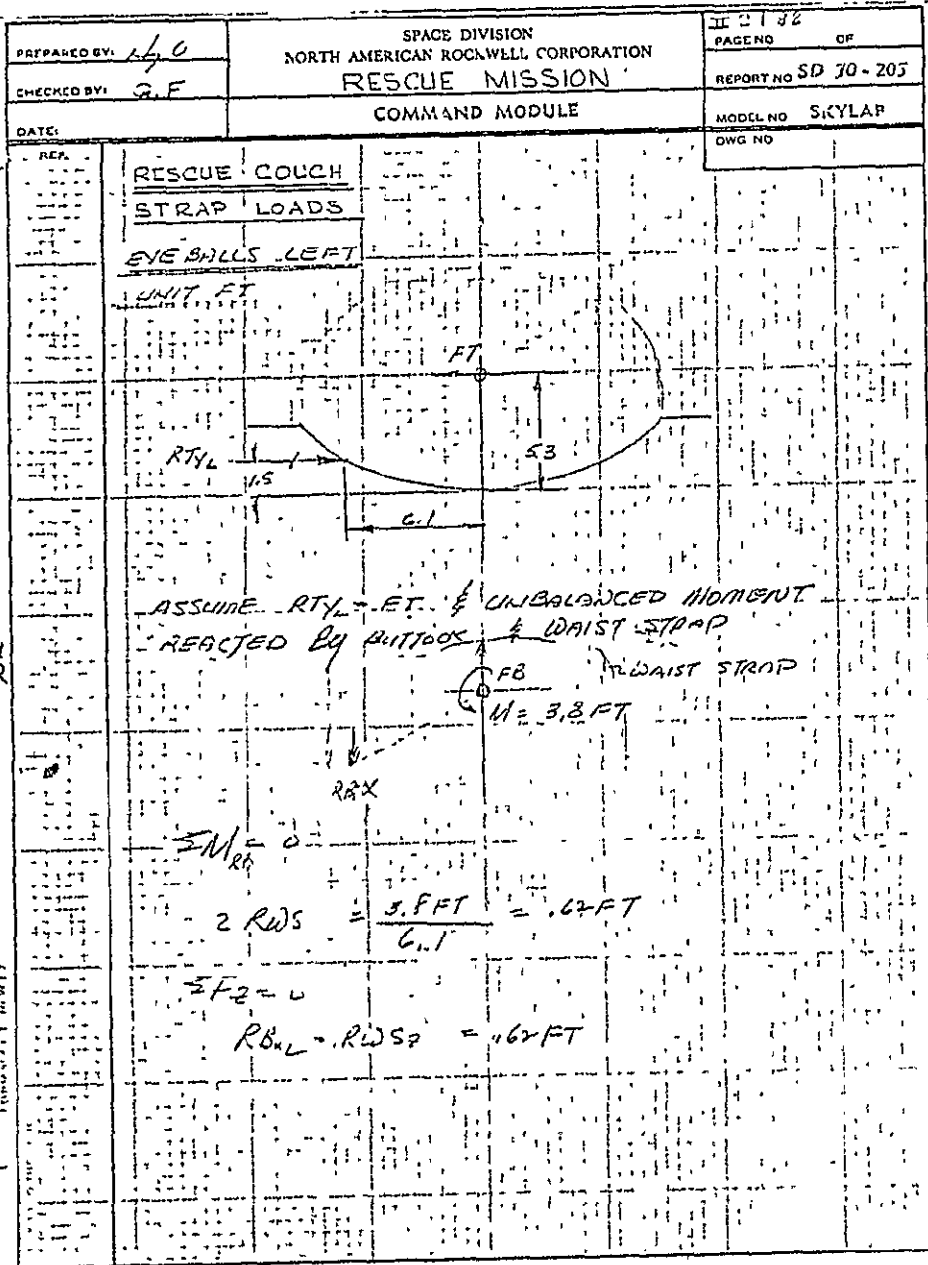 PREPARED BY:
CHECKED BY:
DATE:
SPACE DIVISION
NORTH AMERICAN ROCKWELL CORPORATION
RESCUE MISSION
COMMAND MODULE
PAGE NO OF
REPORT NO SD 70-205
MODEL NO SKYLAB
DWG NO
REF.
RESCUE COUCH
STRAP LOADS
EYE BALLS LEFT
UNIT FT
FT
RTYL
1.5
5.3
6.1
ASSUME RTYL = FT & UNBALANCED MOMENT
REACTED BY BUTTOCK & WAIST STRAP
WAIST STRAP
FB
M = 3.8 FT
RBX
ΣM = 0
2 RWS = 3.8 FT / 6.1 = .62 FT
ΣFZ = 0
RBXL = RWSZ = .62 FT